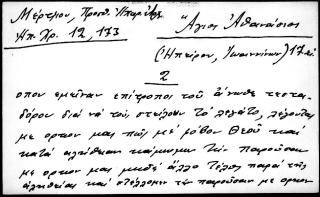 Μέρτζιου, Προσθ. Ηπαρ. Χρ.
Ηπ. Χρ. 12, 173
Ἅγιος Ἀθανάσιος
(Ηπείρου, Ἰωαννίνων) 17
2
οπου εμειναν επιτροποι τοῦ ἄνωθε τεστα-
δόρου διά νά τοῦ στείλουν τό λεγάτο, λέγοντες
με ορκον μας πῶς μέ φόβον Θεοῦ καί
κατά αλήθειαν κάμνομε τήν παροῦσαν
με ορκον μας μηδέ άλλο τέλος παρά τῆς
αληθείας καί στέλλομεν τήν παροῦσαν με ορκον